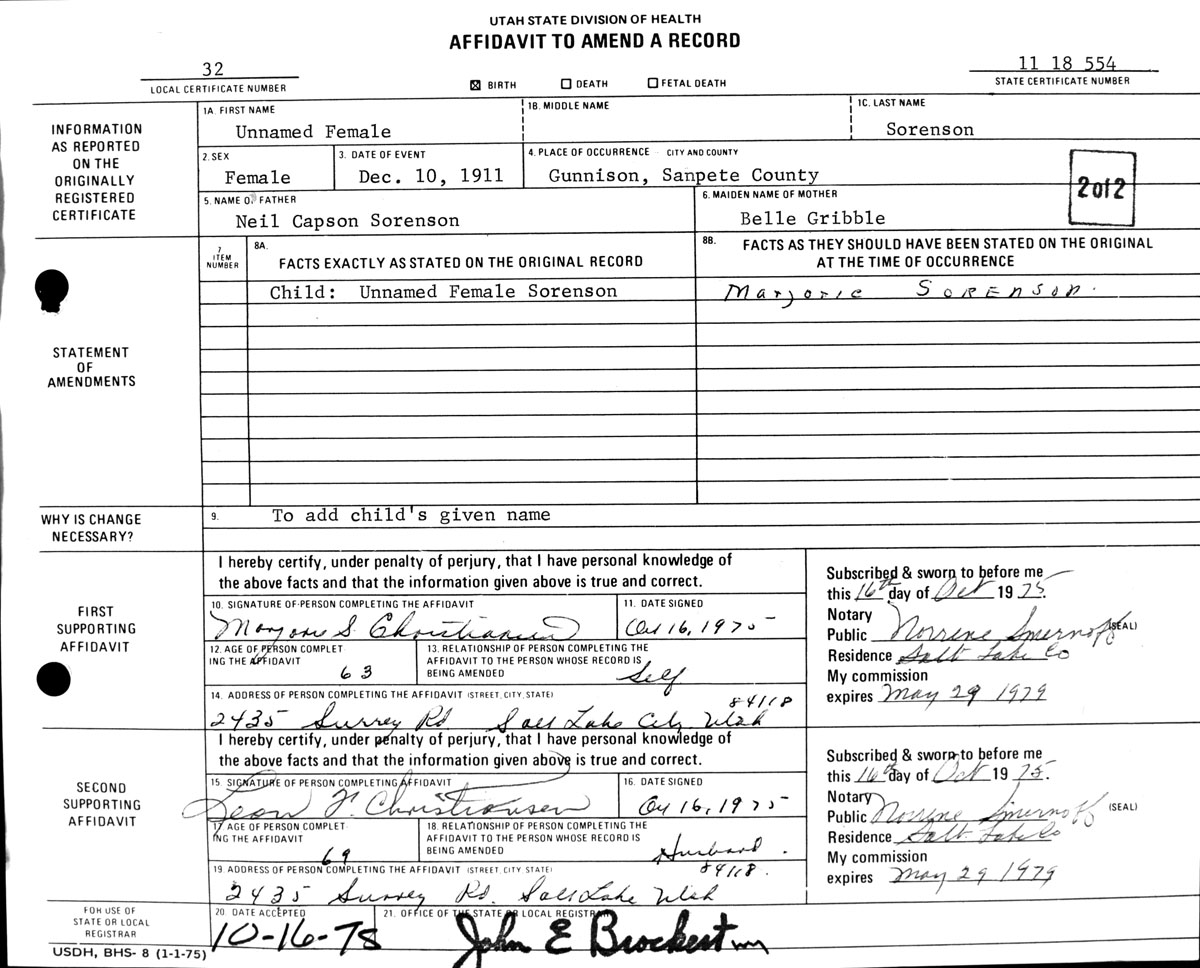 UTAH STATE DIVISION OF HEALTH
AFFIDAVIT TO AMEND A RECORD
32
LOCAL CERTIFICATE NUMBER
☒ BIRTH ☐ DEATH ☐ FETAL DEATH
11 18 554
STATE CERTIFICATE NUMBER
INFORMATION
AS REPORTED
ON THE
ORIGINALLY
REGISTERED
CERTIFICATE
1A. FIRST NAME
Unnamed Female
1B. MIDDLE NAME
1C. LAST NAME
Sorenson
2. SEX
Female
3. DATE OF EVENT
Dec. 10, 1911
4. PLACE OF OCCURRENCE - CITY AND COUNTY
Gunnison, Sanpete County
2 of 2
5. NAME OF FATHER
Neil Capson Sorenson
6. MAIDEN NAME OF MOTHER
Belle Gribble
STATEMENT
OF
AMENDMENTS
7
ITEM
NUMBER
8A.
FACTS EXACTLY AS STATED ON THE ORIGINAL RECORD
8B. FACTS AS THEY SHOULD HAVE BEEN STATED ON THE ORIGINAL
AT THE TIME OF OCCURRENCE
Child: Unnamed Female Sorenson
Marjorie Sorenson.
WHY IS CHANGE
NECESSARY?
9. To add child's given name
FIRST
SUPPORTING
AFFIDAVIT
I hereby certify, under penalty of perjury, that I have personal knowledge of
the above facts and that the information given above is true and correct.
10. SIGNATURE OF PERSON COMPLETING THE AFFIDAVIT
Marjorie S. Christiansen
11. DATE SIGNED
Oct 16, 1975
12. AGE OF PERSON COMPLET
ING THE AFFIDAVIT
63
13. RELATIONSHIP OF PERSON COMPLETING THE
AFFIDAVIT TO THE PERSON WHOSE RECORD IS
BEING AMENDED
Self
14. ADDRESS OF PERSON COMPLETING THE AFFIDAVIT (STREET, CITY, STATE)
84118
2435 Surrey Rd Salt Lake City Utah
Subscribed & sworn to before me
this 16th day of Oct 1975.
Notary
Public Norrene Smernoff (SEAL)
Residence Salt Lake Co
My commission
expires May 29 1979
SECOND
SUPPORTING
AFFIDAVIT
I hereby certify, under penalty of perjury, that I have personal knowledge of
the above facts and that the information given above is true and correct.
15. SIGNATURE OF PERSON COMPLETING AFFIDAVIT
Leon Christiansen
16. DATE SIGNED
Oct 16, 1975
17 AGE OF PERSON COMPLET
ING THE AFFIDAVIT
69
18. RELATIONSHIP OF PERSON COMPLETING THE
AFFIDAVIT TO THE PERSON WHOSE RECORD IS
BEING AMENDED
Husband.
19. ADDRESS OF PERSON COMPLETING THE AFFIDAVIT (STREET, CITY STATE)
84118.
2435 Surrey Rd. Salt Lake Utah
Subscribed & sworn to before me
this 16th day of Oct 1975.
Notary
Public Norrene Smernoff (SEAL)
Residence Salt Lake Co
My commission
expires May 29 1979
FOR USE OF
STATE OR LOCAL
REGISTRAR
20. DATE ACCEPTED
10-16-78
21. OFFICE OF THE STATE OR LOCAL REGISTRAR
John E Brockert
USDH, BHS- 8 (1-1-75)